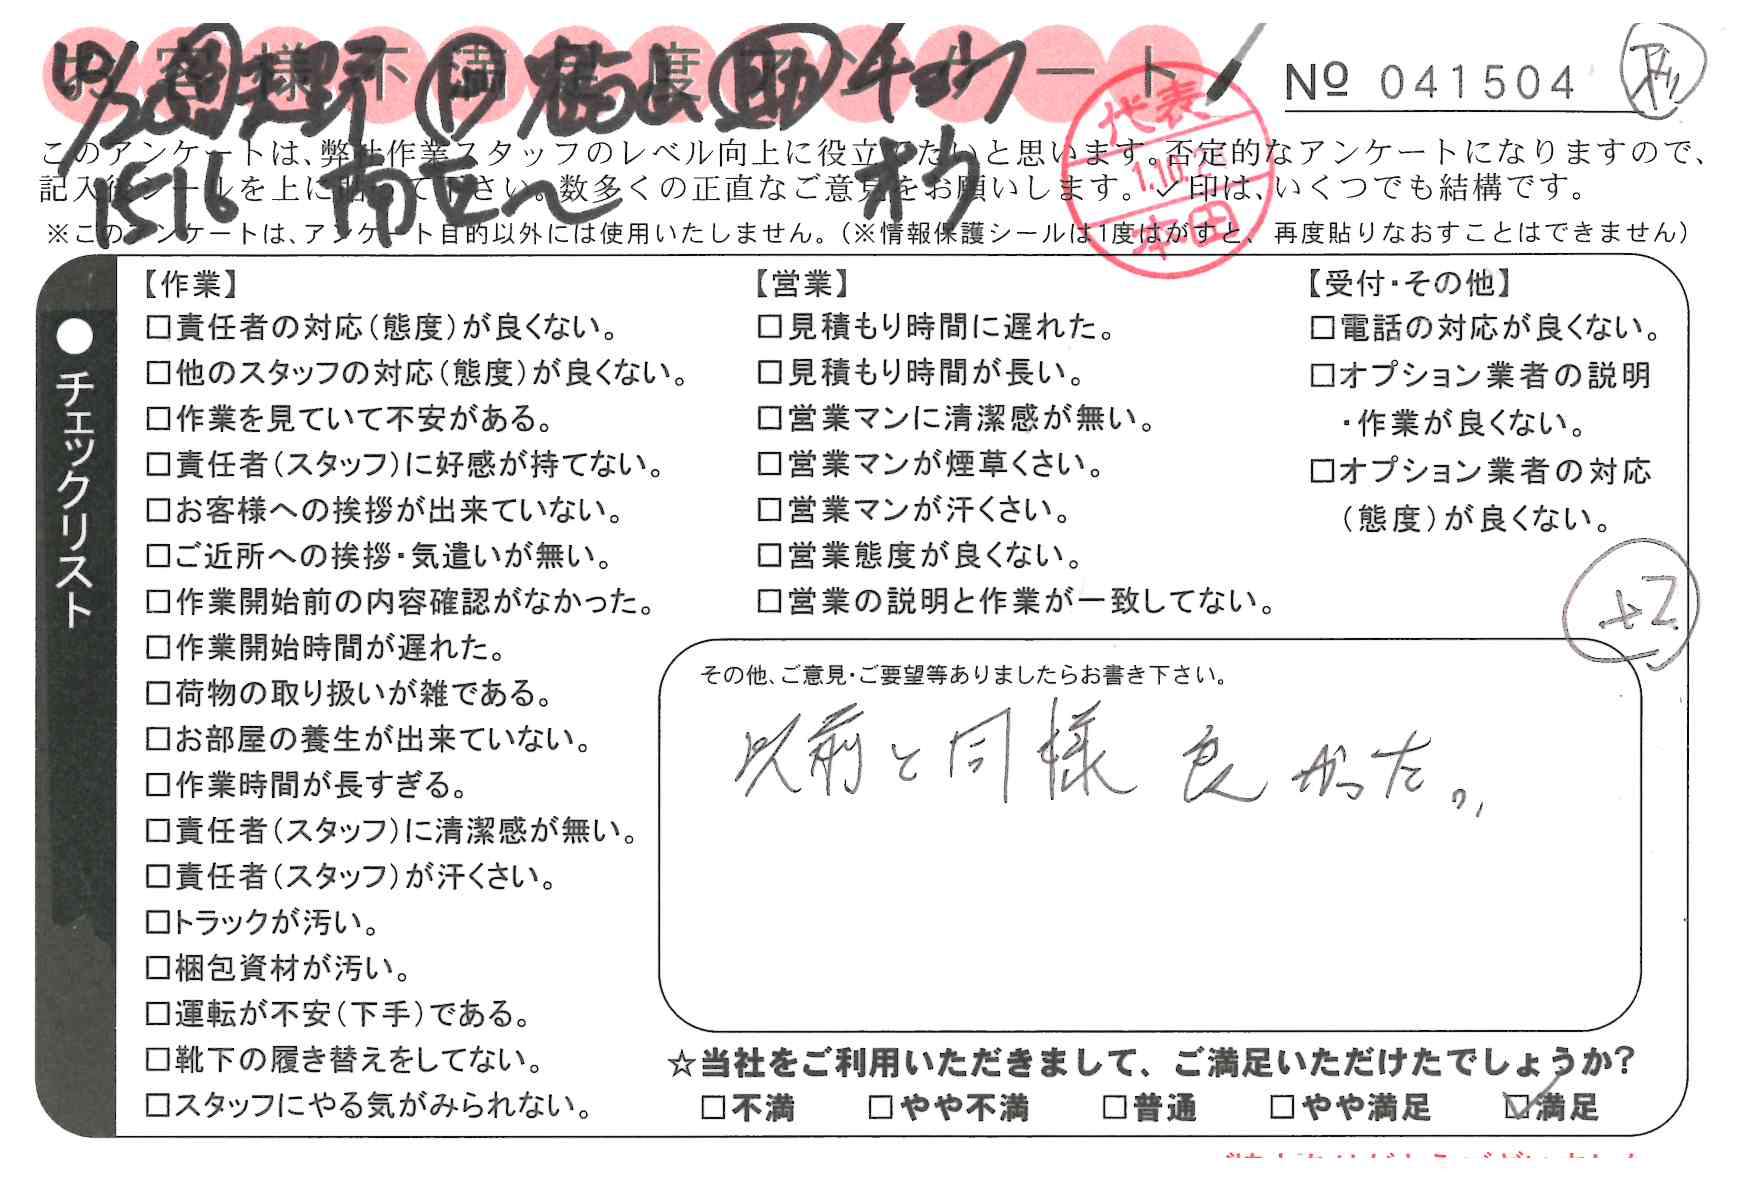 お客様不満足度アンケート
№ 041504
このアンケートは、弊社作業スタッフのレベル向上に役立てたいと思います。否定的なアンケートになりますので、
記入後シールを上に貼って下さい。数多くの正直なご意見をお願いします。✓印は、いくつでも結構です。
※このアンケートは、アンケート目的以外には使用いたしません。(※情報保護シールは1度はがすと、再度貼りなおすことはできません)
代表
本田
1516
●チェックリスト
【作業】
□責任者の対応(態度)が良くない。
□他のスタッフの対応(態度)が良くない。
□作業を見ていて不安がある。
□責任者(スタッフ)に好感が持てない。
□お客様への挨拶が出来ていない。
□ご近所への挨拶・気遣いが無い。
□作業開始前の内容確認がなかった。
□作業開始時間が遅れた。
□荷物の取り扱いが雑である。
□お部屋の養生が出来ていない。
□作業時間が長すぎる。
□責任者(スタッフ)に清潔感が無い。
□責任者(スタッフ)が汗くさい。
□トラックが汚い。
□梱包資材が汚い。
□運転が不安(下手)である。
□靴下の履き替えをしてない。
□スタッフにやる気がみられない。
【営業】
□見積もり時間に遅れた。
□見積もり時間が長い。
□営業マンに清潔感が無い。
□営業マンが煙草くさい。
□営業マンが汗くさい。
□営業態度が良くない。
□営業の説明と作業が一致してない。
【受付・その他】
□電話の対応が良くない。
□オプション業者の説明
・作業が良くない。
□オプション業者の対応
(態度)が良くない。
その他、ご意見・ご要望等ありましたらお書き下さい。
以前と同様良かった。
☆当社をご利用いただきまして、ご満足いただけたでしょうか?
□不満 □やや不満 □普通 □やや満足 ☑満足